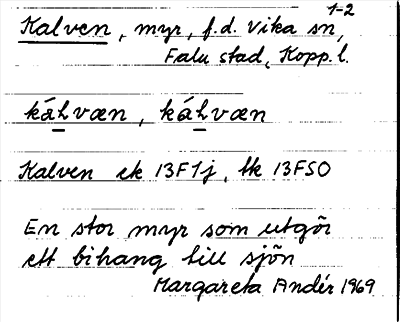 1-2
Kalven, myr, f.d. Vika sn,
Falu stad, Kopp. l.
kálvæn, kálvæn
Kalven ek 13F1j, tk 13FSO
En stor myr som utgör
ett bihang till sjön
Margareta Andér 1969